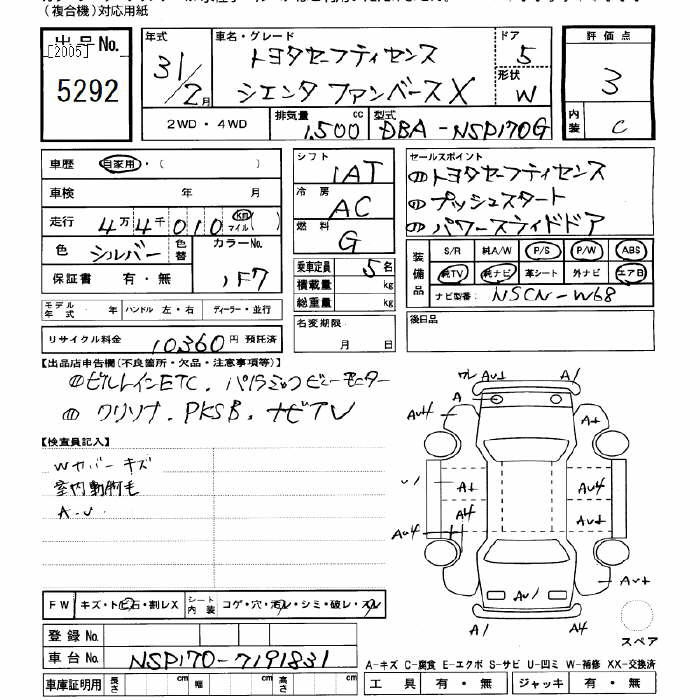 (複合機)対応用紙
出品No.
[2005]
5292
年式
31/2月
車名・グレード
トヨタセーフティセンス
シエンタ ファンバースX
ドア
5
形状
W
評価点
3
内装
C
2WD・4WD
排気量
1,500 cc
型式
DBA-NSP170G
車歴 自家用・( )
車検 年 月
走行 4万4千010 km マイル( )
色 シルバー 色替 カラーNo. 1F7
保証書 有・無
モデル年式 年 ハンドル 左・右 ディーラー・並行
リサイクル料金 10360円 預託済
シフト
IAT
冷房
AC
燃料
G
乗車定員 5名
積載量 kg
総重量 kg
名変期限
月 日
セールスポイント
①トヨタセーフティセンス
①プッシュスタート
①パワースライドドア
装備品
S/R 純A/W P/S P/W ABS
純TV 純ナビ 革シート 外ナビ エアB
ナビ型番: NSCN-W68
後日品
【出品店申告欄(不良箇所・欠品・注意事項等)】
①ビルトインETC. パノラミックビューモニター
①クリソナ. PKSB. ナビTV
【検査員記入】
Wカバーキズ
室内動物毛
A.U
FW キズ・トビ石・割レX シート内装 コゲ・穴・汚レ・シミ・破レ・スレ
登録No.
車台No. NSP170-7191831
車庫証明用 長さ cm 幅 cm 高さ cm
ワレ AU1 A1
A
AU4 A1
A1 AU4
AU4 A4 AU1
AU1 AU1
A1 A4
スペア
A-キズ C-腐食 E-エクボ S-サビ U-凹ミ W-補修 XX-交換済
工具 有・無 ジャッキ 有・無